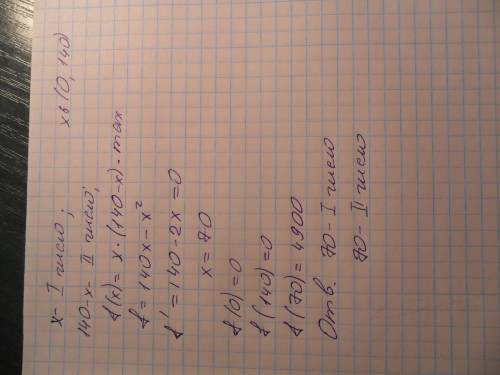 x - I число;
140-x - II число; x в (0, 140)
f(x) = x · (140-x) - max
f = 140x - x²
f' = 140 - 2x = 0
x = 70
f(0) = 0
f(140) = 0
f(70) = 4900
Отв. 70 - I число
70 - II число